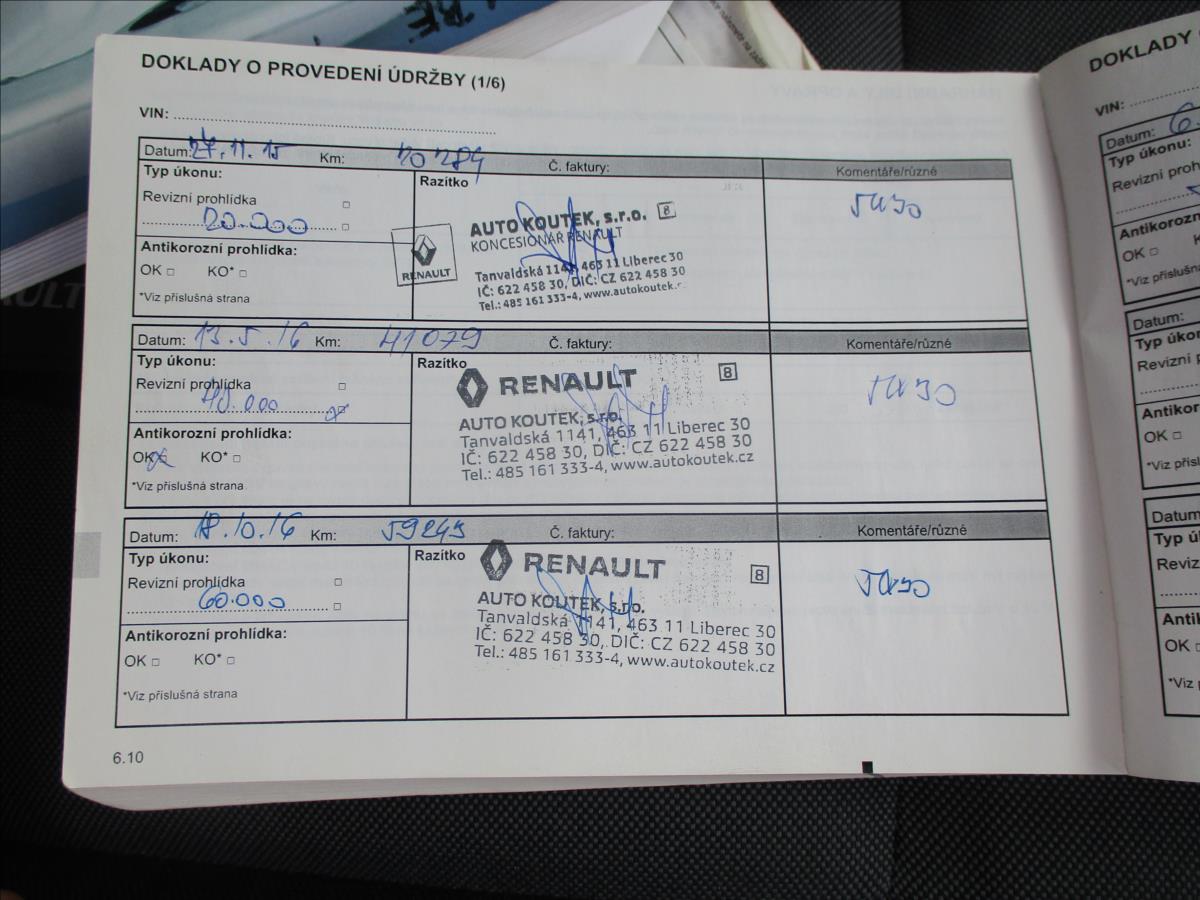 DOKLADY O PROVEDENÍ ÚDRŽBY (1/6)
VIN:
Datum: 27.11.15 Km: 20284 Č. faktury: Komentáře/různé
Typ úkonu:
Revizní prohlídka
20.000
Antikorozní prohlídka:
OK KO*
*Viz příslušná strana
Razítko
RENAULT
AUTO KOUTEK, s.r.o. 8
KONCESIONÁŘ RENAULT
Tanvaldská 1141, 463 11 Liberec 30
IČ: 622 458 30, DIČ: CZ 622 458 30
Tel.: 485 161 333-4, www.autokoutek.c
5W30
Datum: 13.5.16 Km: 41079 Č. faktury: Komentáře/různé
Typ úkonu:
Revizní prohlídka
40.000
Antikorozní prohlídka:
OK KO*
*Viz příslušná strana
Razítko
RENAULT 8
AUTO KOUTEK, s.r.o.
Tanvaldská 1141, 463 11 Liberec 30
IČ: 622 458 30, DIČ: CZ 622 458 30
Tel.: 485 161 333-4, www.autokoutek.cz
5W30
Datum: 18.10.16 Km: 59245 Č. faktury: Komentáře/různé
Typ úkonu:
Revizní prohlídka
60.000
Antikorozní prohlídka:
OK KO*
*Viz příslušná strana
Razítko
RENAULT 8
AUTO KOUTEK, s.r.o.
Tanvaldská 1141, 463 11 Liberec 30
IČ: 622 458 30, DIČ: CZ 622 458 30
Tel.: 485 161 333-4, www.autokoutek.cz
5W30
6.10
DOKLADY
VIN:
Datum: 6.
Typ úkonu:
Revizní prohl
Antikorozní
OK
*Viz příslušn
Datum:
Typ úko
Revizní
Antikoro
OK
*Viz přís
Datum
Typ ú
Reviz
Antil
OK
*Viz p